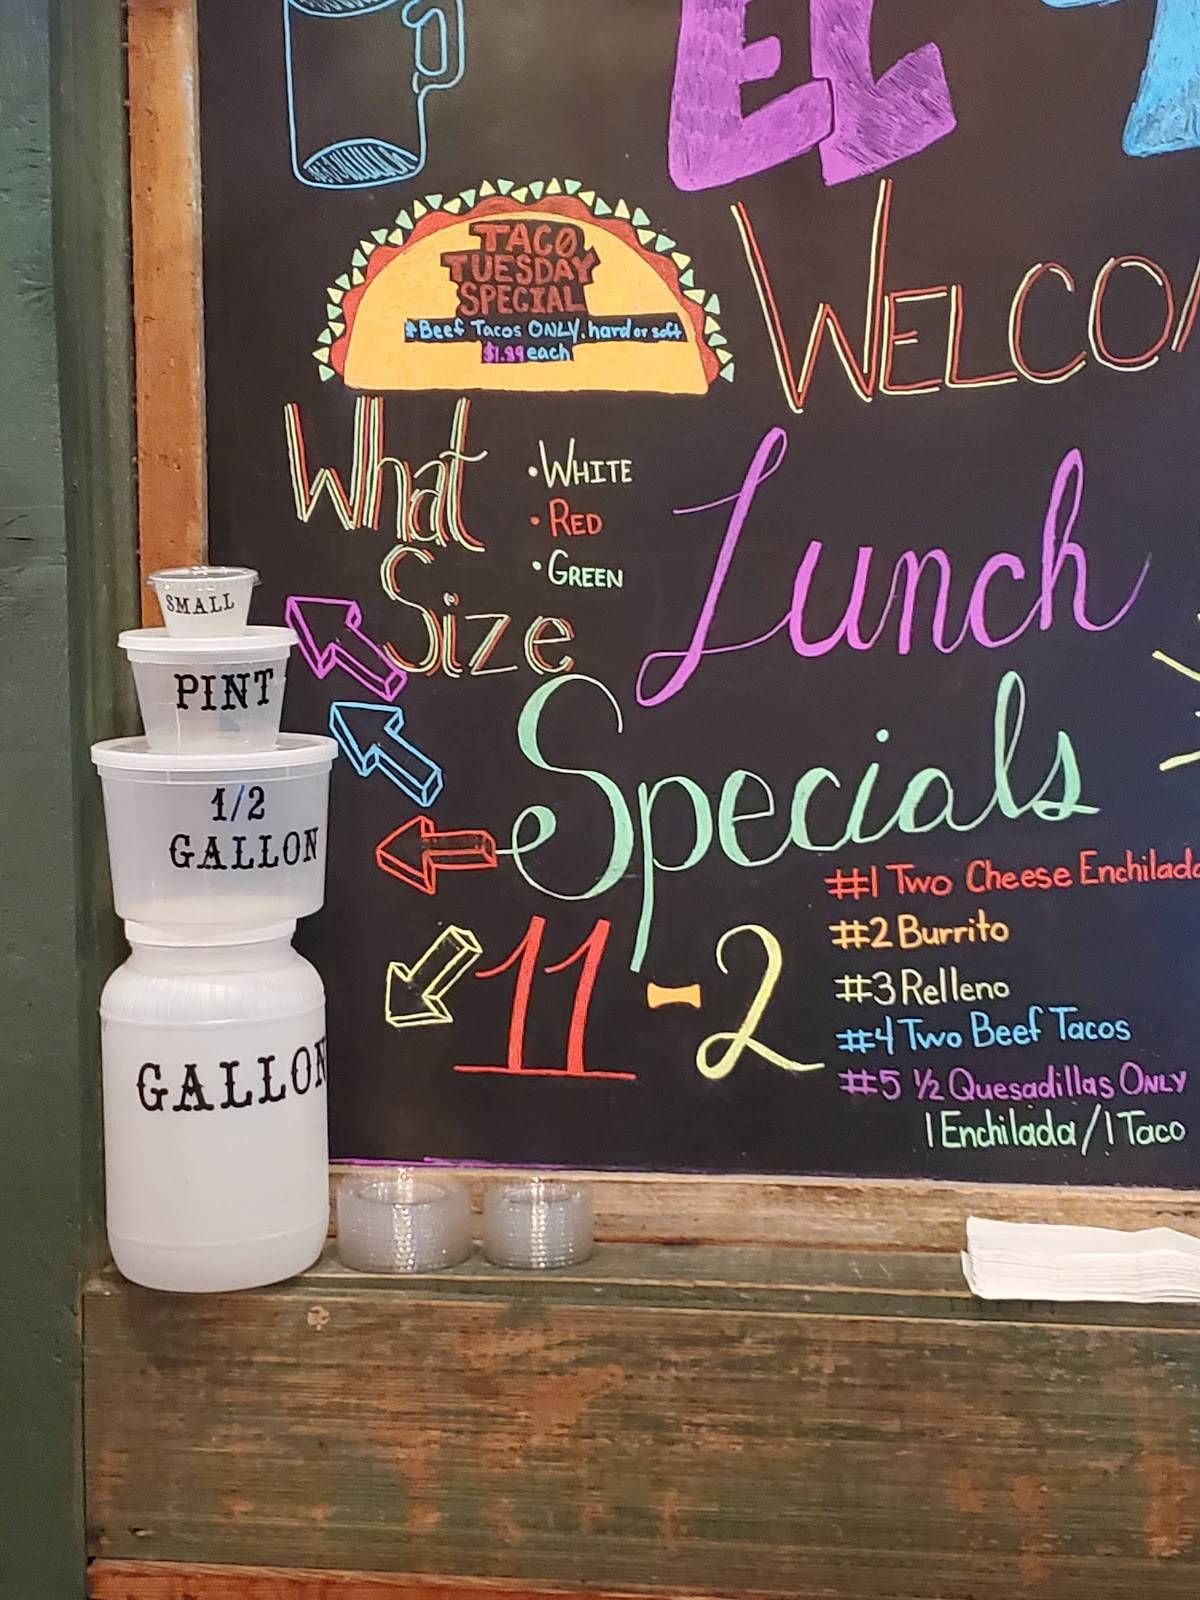 EL
TACO
TUESDAY
SPECIAL
*Beef Tacos ONLY. hard or soft
$1.99 each
WELCO
What
Size
• WHITE
• RED
• GREEN
SMALL
PINT
1/2
GALLON
GALLON
Lunch
Specials
11-2
#1 Two Cheese Enchilada
#2 Burrito
#3 Relleno
#4 Two Beef Tacos
#5 ½ Quesadillas ONLY
1 Enchilada/1 Taco